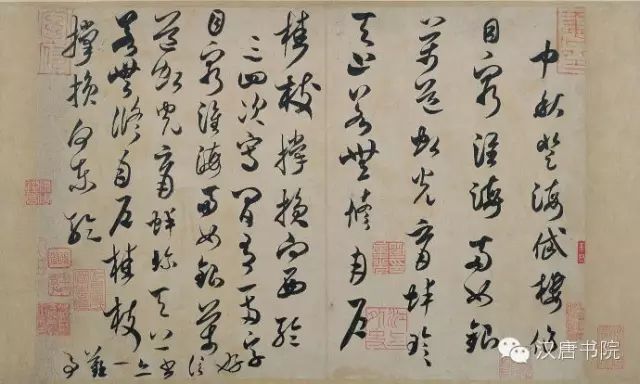 中秋登海岱樓作
目窮淮海兩如銀
萬道虹光育蚌珍
天上若無修月戶
桂枝撐損向西輪
三四次寫間有一兩字好
目窮淮海兩如銀萬信
道虹光育蚌珍天上書
若無修月戶桂枝亦一
撐損向東輪難事
汉唐书院